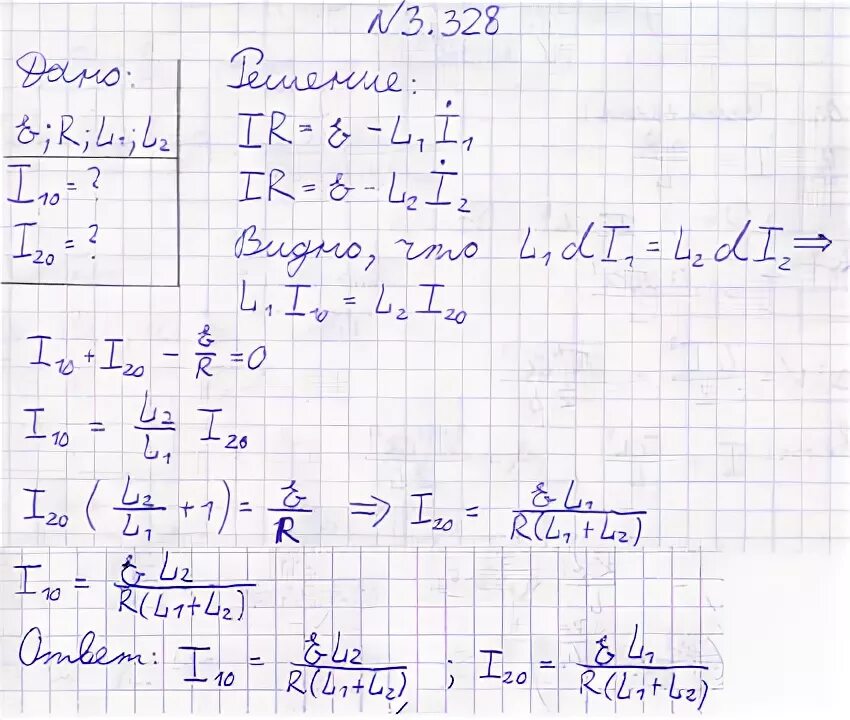 №3.328
Дано:
ℰ; R; L₁; L₂
I₁₀ = ?
I₂₀ = ?
Решение:
IR = ℰ - L₁ İ₁
IR = ℰ - L₂ İ₂
Видно, что L₁ dI₁ = L₂ dI₂ ⇒
L₁ I₁₀ = L₂ I₂₀
I₁₀ + I₂₀ - ℰ/R = 0
I₁₀ = L₂/L₁ I₂₀
I₂₀ (L₂/L₁ + 1) = ℰ/R ⇒ I₂₀ = ℰ L₁/R(L₁+L₂)
I₁₀ = ℰ L₂/R(L₁+L₂)
Ответ: I₁₀ = ℰL₂/R(L₁+L₂) ; I₂₀ = ℰ L₁/R(L₁+L₂)